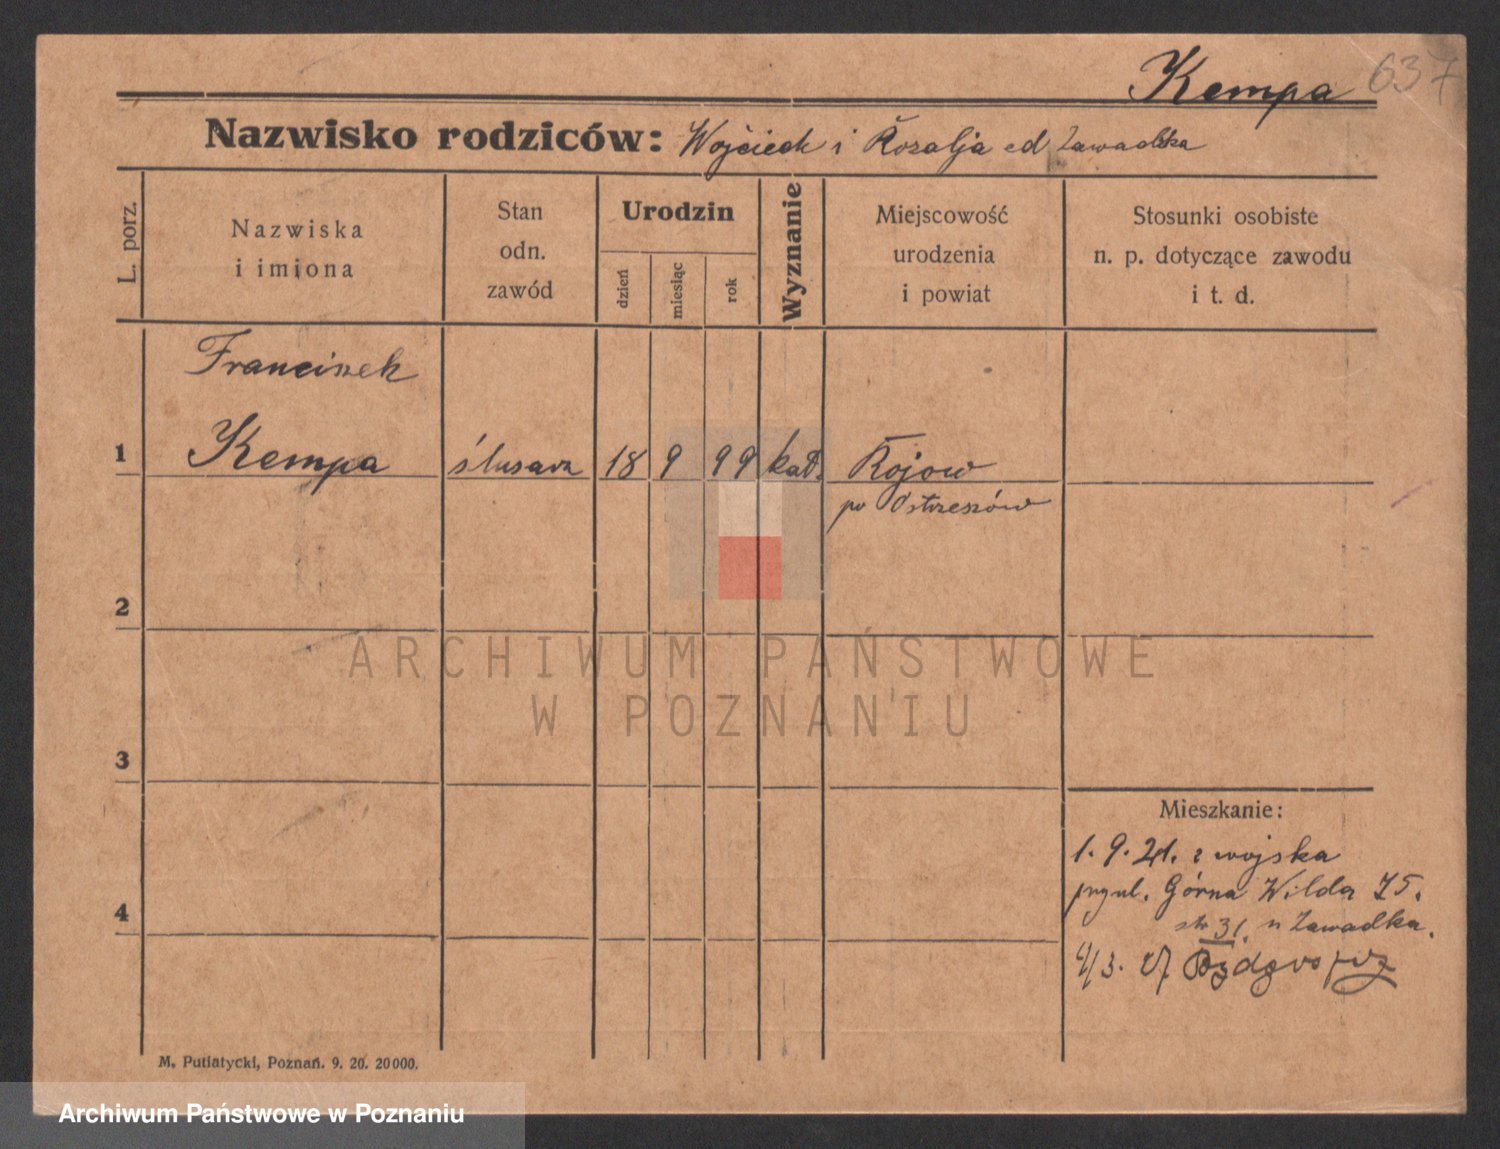 Kempa 637
Nazwisko rodziców: Wojciech i Rozalja od Zawadzka
L. porz.
Nazwiska
i imiona
Stan
odn.
zawód
Urodzin
dzień
miesiąc
rok
Wyznanie
Miejscowość
urodzenia
i powiat
Stosunki osobiste
n. p. dotyczące zawodu
i t. d.
Franciszek
1 Kempa ślusarz 18 9 99 kat. Kojow
po Ostrzeszów
2
3
4
Mieszkanie:
1. 9. 21. z wojska
Górna Wilda 75.
31. u Zawadka.
/3. 27
M. Putiatycki, Poznań. 9. 20. 20000.
ARCHIWUM PAŃSTWOWE
W POZNANIU
Archiwum Państwowe w Poznaniu